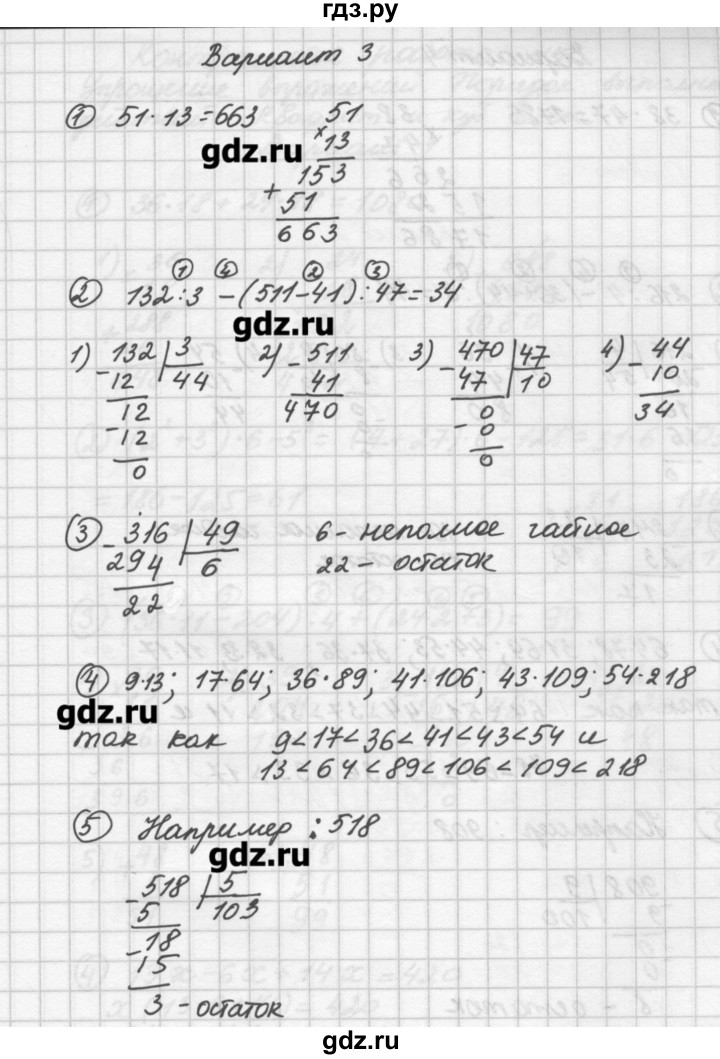 гдз.ру
Вариант 3
① 51·13=663
51
× 13
153
+ 51
663
gdz.ru
① ④ ② ③
② 132:3 - (511-41):47=34
gdz.ru
1) 132 | 3
- 12 | 44
12
- 12
0
2) - 511
41
470
3) - 470 | 47
47 | 10
0
- 0
0
4) - 44
10
34
③ - 316 | 49
294 | 6
22
6 - неполное частное
22 - остаток
④ 9·13; 17·64; 36·89; 41·106; 43·109; 54·218
gdz.ru
так как 9<17<36<41<43<54 и
13<64<89<106<109<218
⑤ Например: 518
gdz.ru
- 518 | 5
5 | 103
18
- 15
3 - остаток
gdz.ru